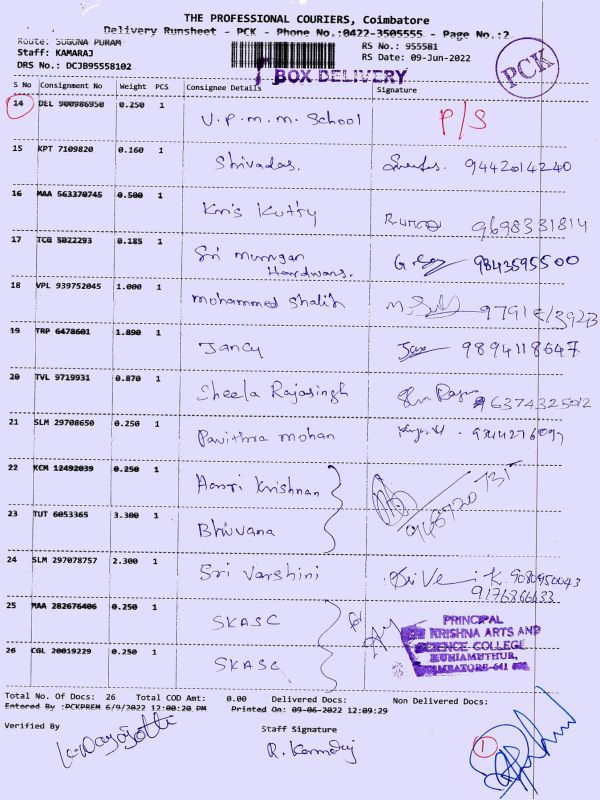 THE PROFESSIONAL COURIERS, Coimbatore
Delivery Runsheet - PCK - Phone No.:0422-3505555 - Page No.:2
Route: SUGUNA PURAM
Staff: KAMARAJ
DRS No.: DCJB95558102
RS No.: 955581
RS Date: 09-Jun-2022
BOX DELIVERY
PCK
S No Consignment No Weight PCS Consignee Details Signature
14 DEL 900986950 0.250 1 V.P.m.m. School P/S
15 KPT 7109820 0.160 1 Shivadas. 9442014240
16 MAA 563370745 0.500 1 Kris Kutty 9698331814
17 TCG 5022293 0.185 1 Sri Murugan Hardwars. 9843595500
18 VPL 939752045 1.000 1 Mohammed Shalih
19 TRP 6478601 1.890 1 Jancy 9894118647
20 TVL 9719931 0.870 1 Sheela Rajasingh 96374325012
21 SLM 29708650 0.250 1 Pavithra Mohan
22 KCM 12492039 0.250 1 Hari Krishnan
23 TUT 6053365 3.300 1 Bhuvana
24 SLM 297078757 2.300 1 Sri Varshini 9080950043
9176866633
25 MAA 282676406 0.250 1 SKASC for
26 CGL 20019229 0.250 1 SKASC
PRINCIPAL
SRI KRISHNA ARTS AND
SCIENCE COLLEGE
KUNIAMUTHUR,
COIMBATORE-641 008.
Total No. Of Docs: 26 Total COD Amt: 0.00 Delivered Docs: Non Delivered Docs:
Entered By :PCKPREM 6/9/2022 12:00:20 PM Printed On: 09-06-2022 12:09:29
Verified By
Staff Signature
R. Kamaraj
1